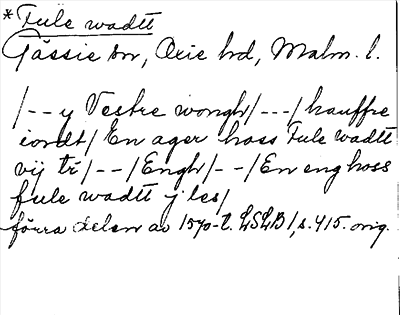 *Fule wadtt
Gässie sn, Oxie hd, Malm. l.
/--y Vestre wongh/---/hauffre
iordt/En ager hoss Fule wadtt
vij tr/--/Engh/--/En eng hoss
fule wadtt j les/
förra delen av 1570-t. LSLB 1, s. 415. orig.